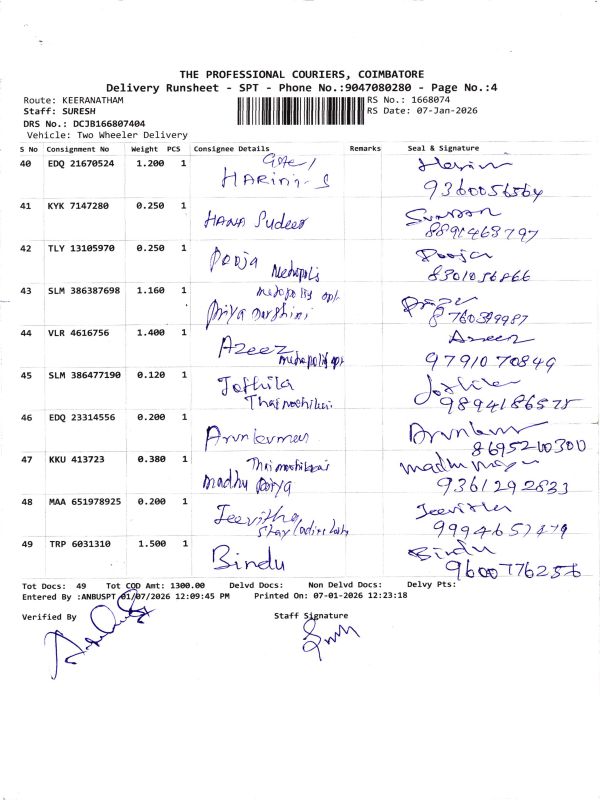 THE PROFESSIONAL COURIERS, COIMBATORE
Delivery Runsheet - SPT - Phone No.:9047080280 - Page No.:4
Route: KEERANATHAM
RS No.: 1668074
Staff: SURESH
RS Date: 07-Jan-2026
DRS No.: DCJB166807404
Vehicle: Two Wheeler Delivery
S No Consignment No Weight PCS Consignee Details Remarks Seal & Signature
40 EDQ 21670524 1.200 1
HARINI-S
9360056564
41 KYK 7147280 0.250 1
HANA Sudeer
8891463797
42 TLY 13105970 0.250 1 Pooja Pooja
Metropolis 8301056866
43 SLM 386387698 1.160 1 metropolis apt
Priya Darshini 8760399987
44 VLR 4616756 1.400 1 Azeez Azeez
metropolis apt 9791070849
45 SLM 386477190 0.120 1 Jothila
9894186575
46 EDQ 23314556 0.200 1
Arunkumar Arunkumar
8695210300
47 KKU 413723 0.380 1
madhu Priya madhu
9361292833
48 MAA 651978925 0.200 1 Jeevitha Jeevitha
Stay ladies 9994657479
49 TRP 6031310 1.500 1 Bindu Bindu
9600776256
Tot Docs: 49 Tot COD Amt: 1300.00 Delvd Docs: Non Delvd Docs: Delvy Pts:
Entered By :ANBUSPT 01/07/2026 12:09:45 PM Printed On: 07-01-2026 12:23:18
Verified By Staff Signature